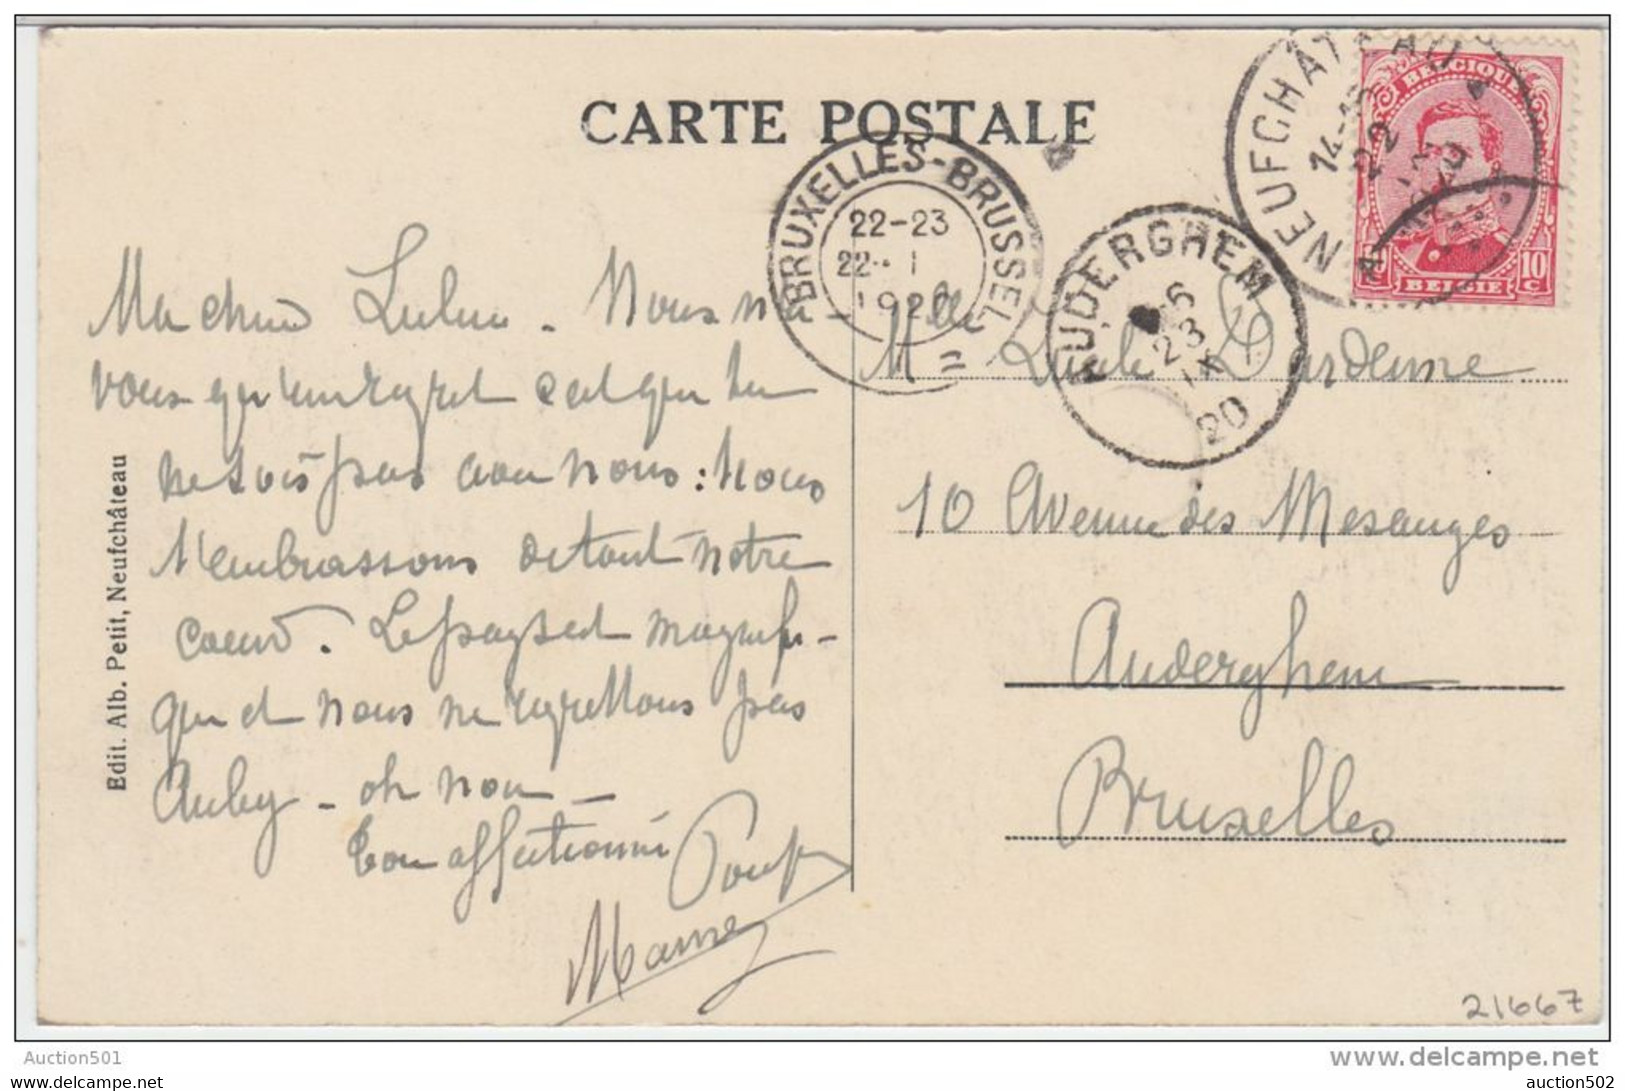 CARTE POSTALE
NEUFCHÂTEAU
14-15
22
BELGIQUE
10 10
C
BELGIË
BRUXELLES-BRUSSEL
22-23
22
1920
AUDERGHEM
6
23
IX
20
Ma chère Lulu. Nous n'a-
vons qu'un regret c'est que tu
ne sois pas avec nous : Nous
t'embrassons de tout notre
coeur. Le pays est magnifi-
que et nous ne regrettons pas
Auby - oh non -
Ton affectionné Poup
Mamy
Edit. Alb. Petit, Neufchâteau
Mlle Lulu Dardenne
10 Avenue des Mesanges
Auderghem
Bruxelles
21667
Auction501
www.delcampe.net
auction502
auction502